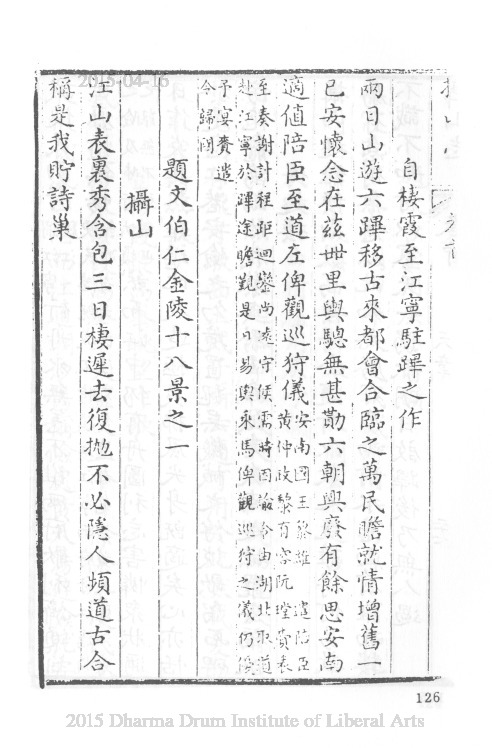 自棲霞至江寧駐蹕之作
兩日山遊六蹕移古來都會合臨之萬民瞻就情增舊一
已安懷念在茲卌里輿驄無甚勩六朝興廢有餘思安南
適值陪臣至道左俾觀巡狩儀
安南國王黎維遣陪臣
黃仲政黎有容阮瑝賫表
至奏謝計程距迴鑾尚遠守候需時因諭令由湖北取道
赴江寧於蹕途瞻覲是日易輿乘馬俾觀巡狩之儀仍優
予宴賚遣
令歸國
題文伯仁金陵十八景之一
攝山
江山表裏秀含包三日棲遲去復拋不必隱人頻道古合
稱是我貯詩巢
2015-04-16
126
2015 Dharma Drum Institute of Liberal Arts